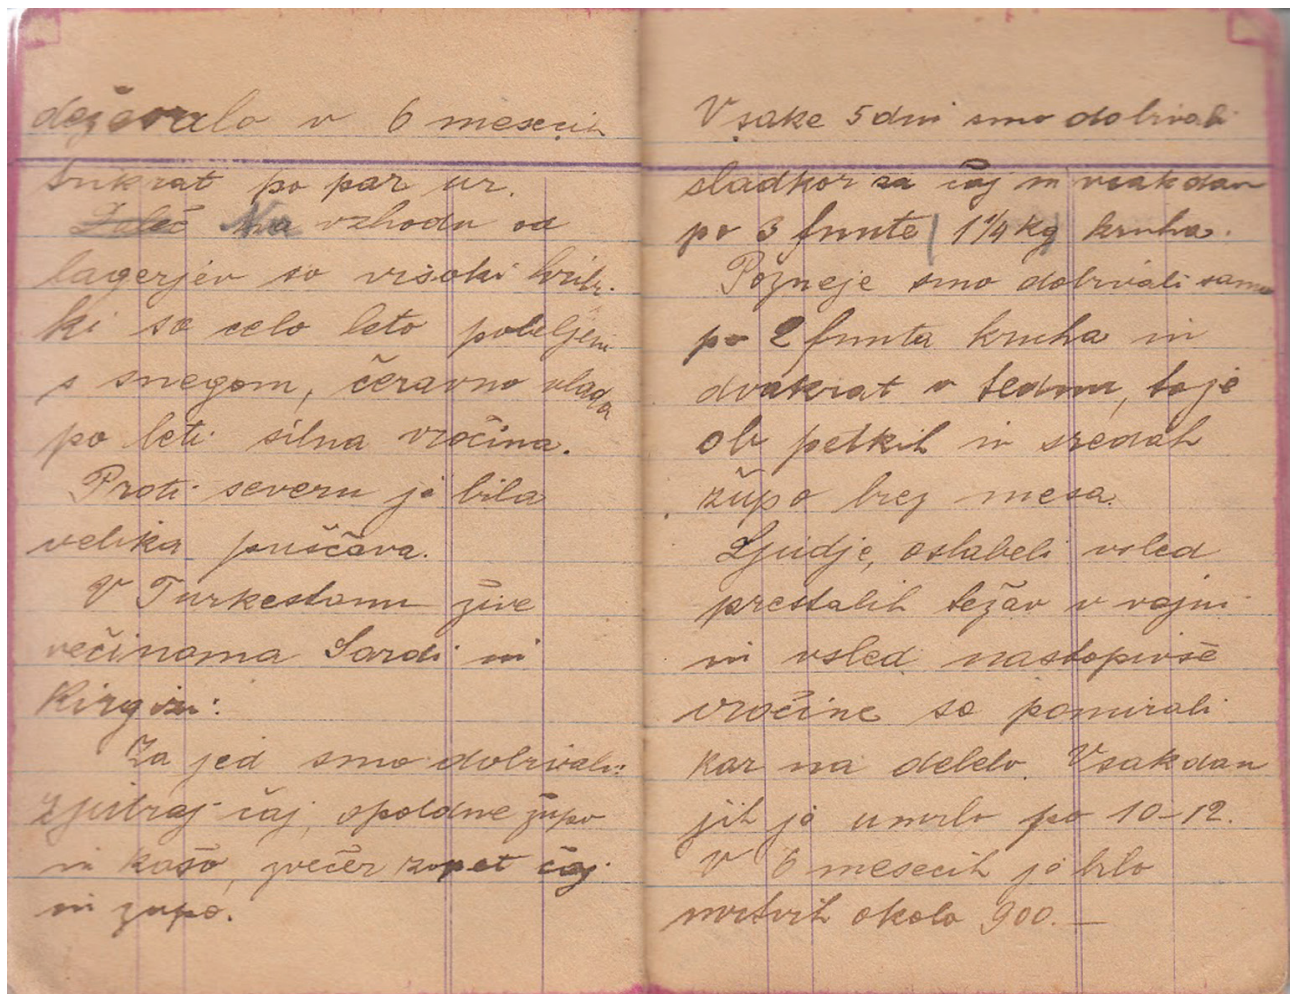 deževalo v 6 mesecih
trikrat po par ur.
Zaleč Na vzhodu od
lagerjev so visoki hribi.
ki so celo leto pobeljeni
s snegom, čeravno vlada
po leti silna vročina.
Proti severu je bila
velika puščava.
V Turkestanu žive
večinoma Sardi in
Kirgizi.
Za jed smo dobivali:
zjutraj čaj, opoldne župo
in kašo, zvečer zopet čaj
in župo.
Vsake 5 dni smo dobivali
sladkor za čaj in vsakdan
po 3 funte (1 1/4 kg) kruha.
Pozneje smo dobivali samo
po 2 funta kruha in
dvakrat v tednu, to je
ob petkih in sredah
župo brez mesa.
Ljudje, oslabeli vsled
prestalih težav v vojni
in vsled nastopivše
vročine so pomirali
kar na debelo. Vsakdan
jih je umrlo po 10-12.
V 6 mesecih je bilo
mrtvih okolo 900.—